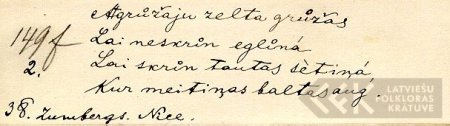 Atgrūžaju zelta grūžas
149f Lai neskrin eglīnā
2. Lai skrin tautas sētiņā,
Kur meitiņas baltas aug.
38. Zumbergs. Nīce.
LATVIEŠU
FOLKLORAS
KRĀTUVE